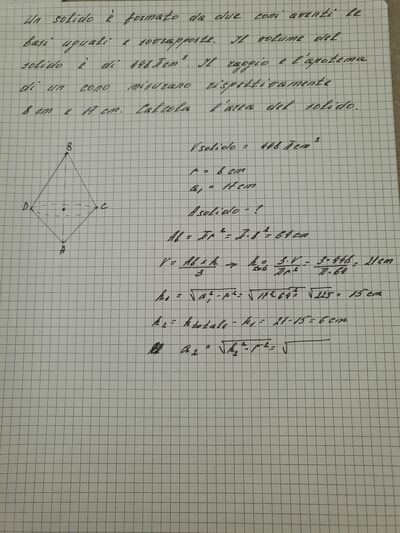 Un solido è formato da due coni aventi le
basi uguali e sovrapposte. Il volume del
solido è di 448π cm³. Il raggio e l'apotema
di un cono misurano rispettivamente
8 cm e 17 cm. Calcola l'area del solido.
B
D
C
A
V solido = 448 π cm³
r = 8 cm
a₁ = 17 cm
A solido - ?
Ab = πr² = π·8² = 64 cm
V = Ab × h / 3 → h = 3·V / πr² = 3·448 / π·64 = 21 cm
h₁ = √a₁² - r² = √17² 64² √225 = 15 cm
h₂ = h totale - h₁ = 21 - 15 = 6 cm
a₂ = √h₂² - r² = √